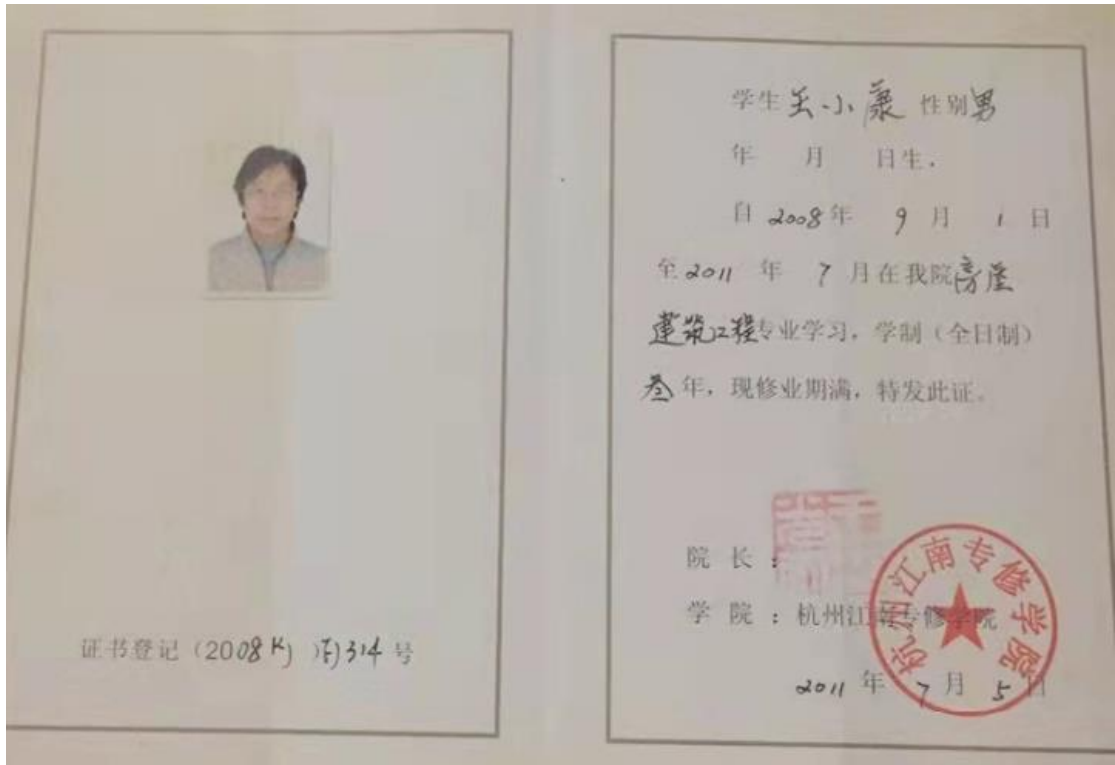 证书登记（2008K）南314号
学生关小康 性别男
年 月 日生，
自 2008年 9 月 1 日
至2011 年 7 月在我院房屋
建筑工程专业学习，学制（全日制）
叁年，现修业期满，特发此证。
院 长：
学 院：杭州江南专修学院
杭州江南专修学院
2011 年 7 月 5 日